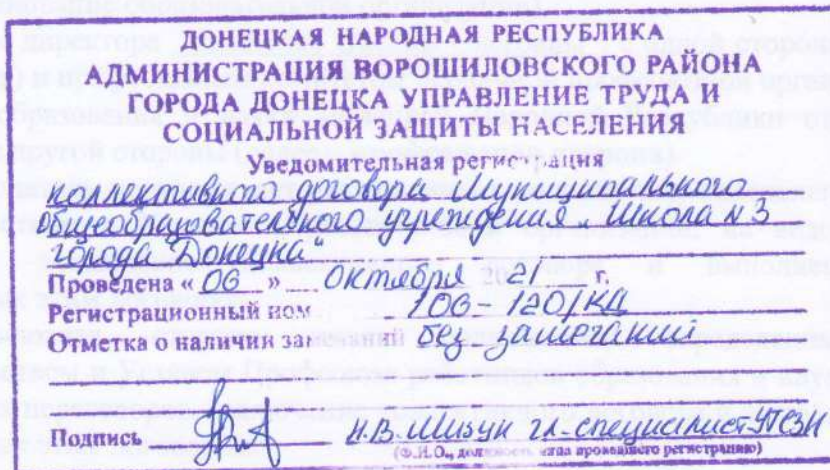 ДОНЕЦКАЯ НАРОДНАЯ РЕСПУБЛИКА
АДМИНИСТРАЦИЯ ВОРОШИЛОВСКОГО РАЙОНА
ГОРОДА ДОНЕЦКА УПРАВЛЕНИЕ ТРУДА И
СОЦИАЛЬНОЙ ЗАЩИТЫ НАСЕЛЕНИЯ
Уведомительная регистрация
коллективного договора Муниципального
общеобразовательного учреждения „Школа №3
города Донецка"
Проведена « 06 » октября 2021 г.
Регистрационный ном 106-120/КД
Отметка о наличии замечаний без замечаний
Подпись Н.В. гл. специалист УТСЗН
(Ф.И.О., должность лица проводившего регистрацию)